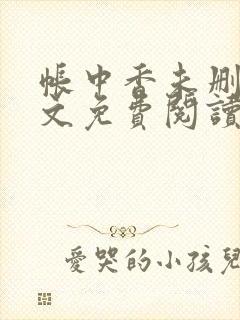 帳中香未刪
文免費閱讀
愛哭的小孩兒